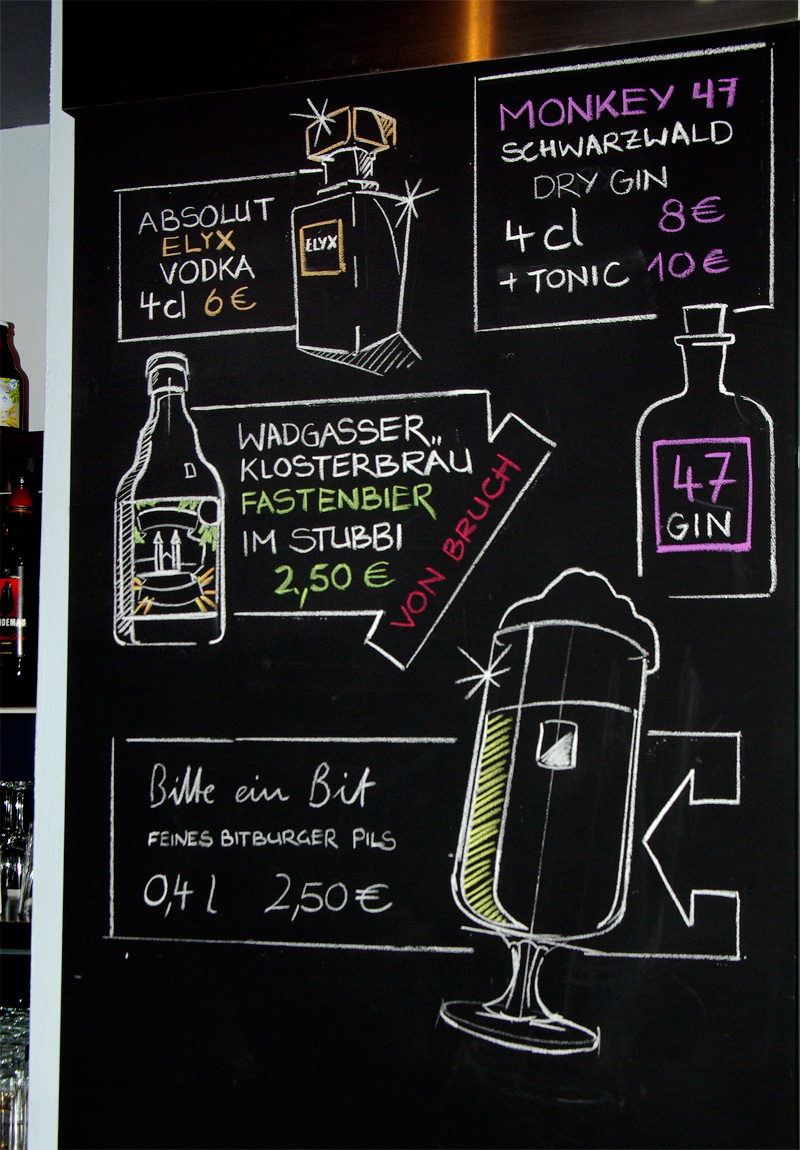 MONKEY 47
SCHWARZWALD
DRY GIN
4 cl 8€
+ TONIC 10€
ABSOLUT
ELYX
VODKA
4cl 6€
ELYX
WADGASSER
KLOSTERBRÄU
FASTENBIER
IM STUBBI
2,50 €
VON BRUCH
47
GIN
Bitte ein Bit
FEINES BITBURGER PILS
0,4 l 2,50 €